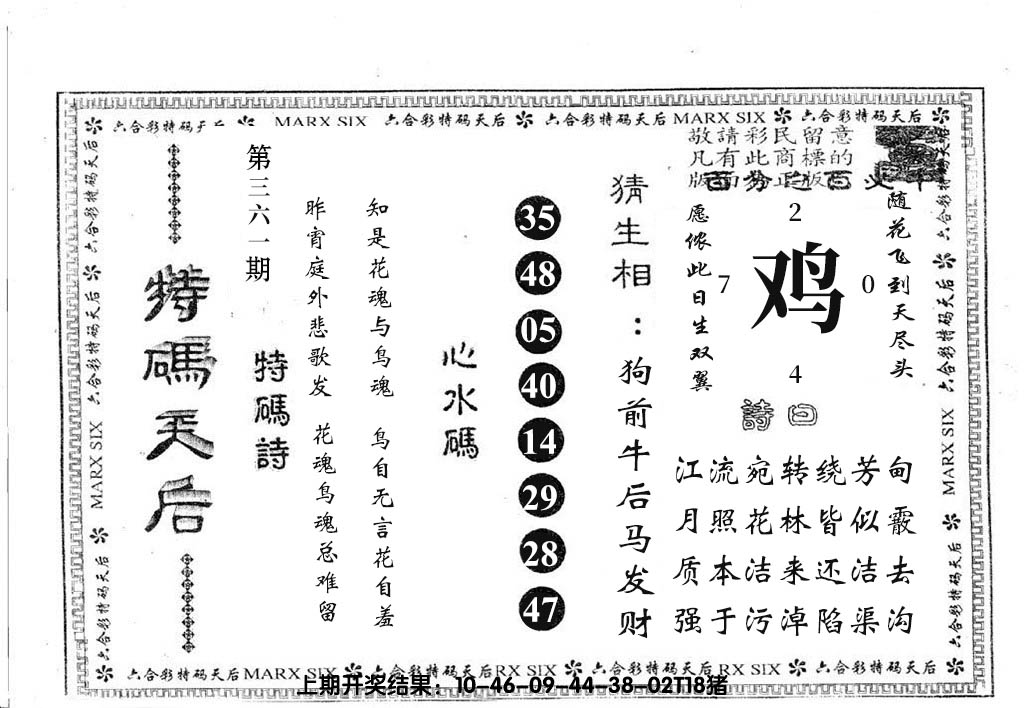 六合彩特码天后 MARX SIX 六合彩特码天后 六合彩特码天后 MARX SIX 六合彩特码天后
敬請彩民留意
凡有此商標的
版面为正版
随花飞到天尽头
2
鸡
7
0
4
愿侬此日生双翼
詩曰
江流宛转绕芳甸
月照花林皆似霰
质本洁来还洁去
强于污淖陷渠沟
猜生相：狗前牛后马发财
35
48
05
40
14
29
28
47
心水碼
知是花魂与鸟魂 鸟自无言花自羞
昨宵庭外悲歌发 花魂鸟魂总难留
特碼詩
第三六一期
特碼天后
六合彩特码天后 六合彩特码天后 MARX SIX 六合彩特码天后
六合彩特码天后 六合彩特码天后 MARX SIX 六合彩特码天后
六合彩特码天后 MARX SIX 六合彩特码天后 RX SIX 六合彩特码天后 RX SIX 六合彩特码天后
上期开奖结果：10-46-09-44-38-02T18猪